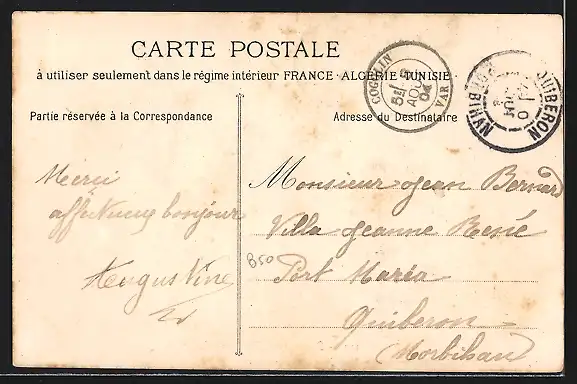 CARTE POSTALE
à utiliser seulement dans le régime intérieur FRANCE - ALGÉRIE - TUNISIE
COGOLIN
AOUT
04
VAR
QUIBERON
MORBIHAN
Partie réservée à la Correspondance
Adresse du Destinataire
Merci
affectueux bonjour
Augustine
Monsieur Jean Bernard
Villa Jeanne René
850
Port Maria
Quiberon
(Morbihan)